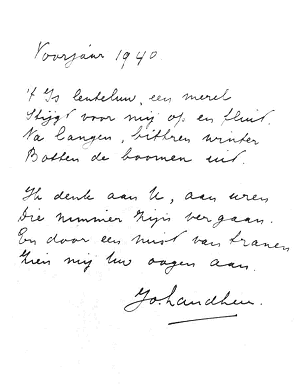 Voorjaar 1940.
't Is lenteluw, een merel
Stijgt voor mij op en fluit.
Na langen, bittren winter
Botten de boomen uit.
Ik denk aan U, aan uren
Die nimmer zijn vergaan.
En door een mist van tranen
Zien mij Uw oogen aan.